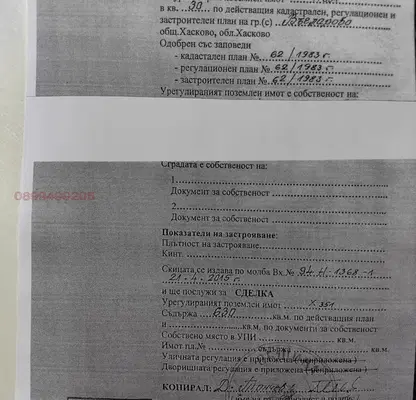 в кв. 30 по действащия кадастрален, регулационен и
застроителен план на гр.(с)
общ.Хасково, обл.Хасково
Одобрен със заповеди
- кадастален план № 62/1983 г.
- регулационен план № 62/1983 г.
- застроителен план № 62/1983 г.
Урегулираният поземлен имот е собственост на:
Сградата е собственост на:
1.
Документ за собственост
2.
Документ за собственост
Показатели на застрояване:
Плътност на застрояване
Кинт.
Скицата се издава по молба Вх.№ 94 Н-1368-1
21.4.2015 г.
и ще послужи за СДЕЛКА
Урегулираният поземлен имот X 351
Съдържа 620 кв.м. по действащия план
и кв.м. по документи за собственост
Собствено място в УПИ кв.м.
Имот пл.№ съдържа кв.м.
Уличната регулация е приложена (неприложена)
Дворищната регулация е приложена (неприложена)
КОПИРАЛ: